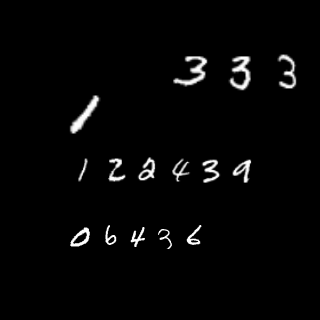 333
1
122439
06436